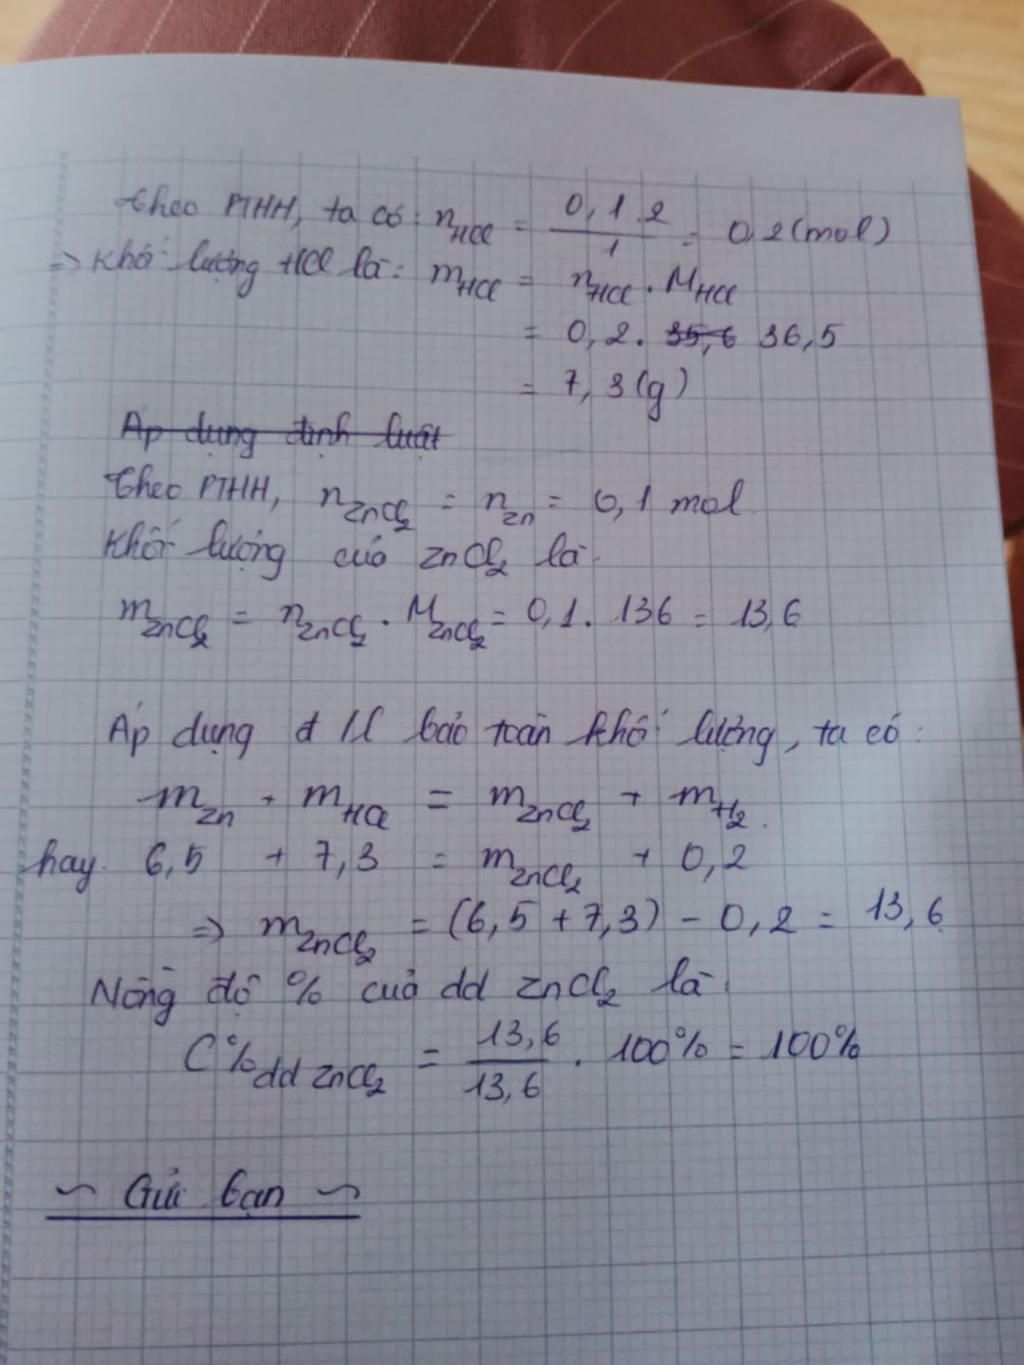 Theo PTHH, ta có: nHCl = 0,1.2/1 = 0,2 (mol)
=> Khối lượng HCl là: mHCl = nHCl . MHCl
= 0,2. 35,6 36,5
= 7,3 (g)
Áp dụng định luật
Theo PTHH, nZnCl2 = nZn = 0,1 mol
Khối lượng của ZnCl2 là:
mZnCl2 = nZnCl2 . MZnCl2 = 0,1. 136 = 13,6
Áp dụng đ/l bảo toàn khối lượng, ta có:
mZn + mHCl = mZnCl2 + mH2.
hay 6,5 + 7,3 = mZnCl2 + 0,2
=> mZnCl2 = (6,5 + 7,3) - 0,2 = 13,6
Nồng độ % của dd ZnCl2 là:
C%dd ZnCl2 = 13,6/13,6 . 100% = 100%
~ Gửi bạn ~